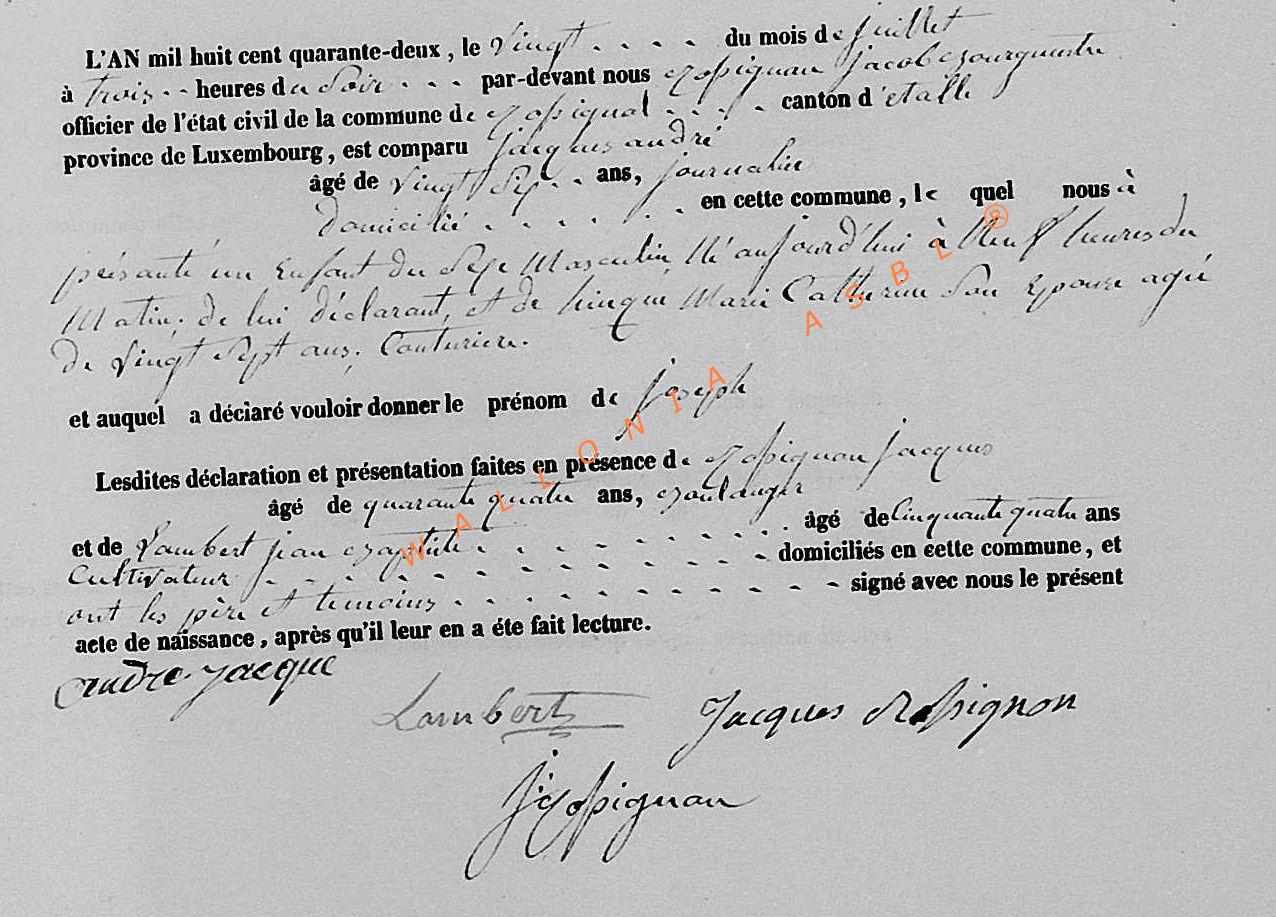 L'AN mil huit cent quarante-deux, le Vingt . . . . du mois de juillet
à trois . . heures du Soir . . . par-devant nous Rossignon jacob Bourguemetre
officier de l'état civil de la commune de Rossignol . . . . canton d'étalle
province de Luxembourg, est comparu Jacques andré
âgé de Vingt Sep . . ans, journalier
Domicilié . . . . . . en cette commune, le quel nous à
présanté un Enfant du Sexe Masculin, Né aujourd'hui à Neuf heures du
Matin, de lui déclarant, et de Marie Catherine Son Epouze agée
de Vingt Sept ans, Couturiere.
et auquel a déclaré vouloir donner le prénom de joseph
Lesdites déclaration et présentation faites en présence de Rossignon jacques
âgé de quarante quatre ans, Boulanger
et de Lambert jean Baptiste . . . . . . . . . âgé de Cinquante quatre ans
Cultivateur . . . . . . . . . . . . domiciliés en cette commune, et
ont les père et temoins . . . . . . . . . . signé avec nous le présent
acte de naissance, après qu'il leur en a éte fait lecture.
andre jacque
Lambert
Jacques Rossignon
J Rossignon
WALLONIA ASBL ®